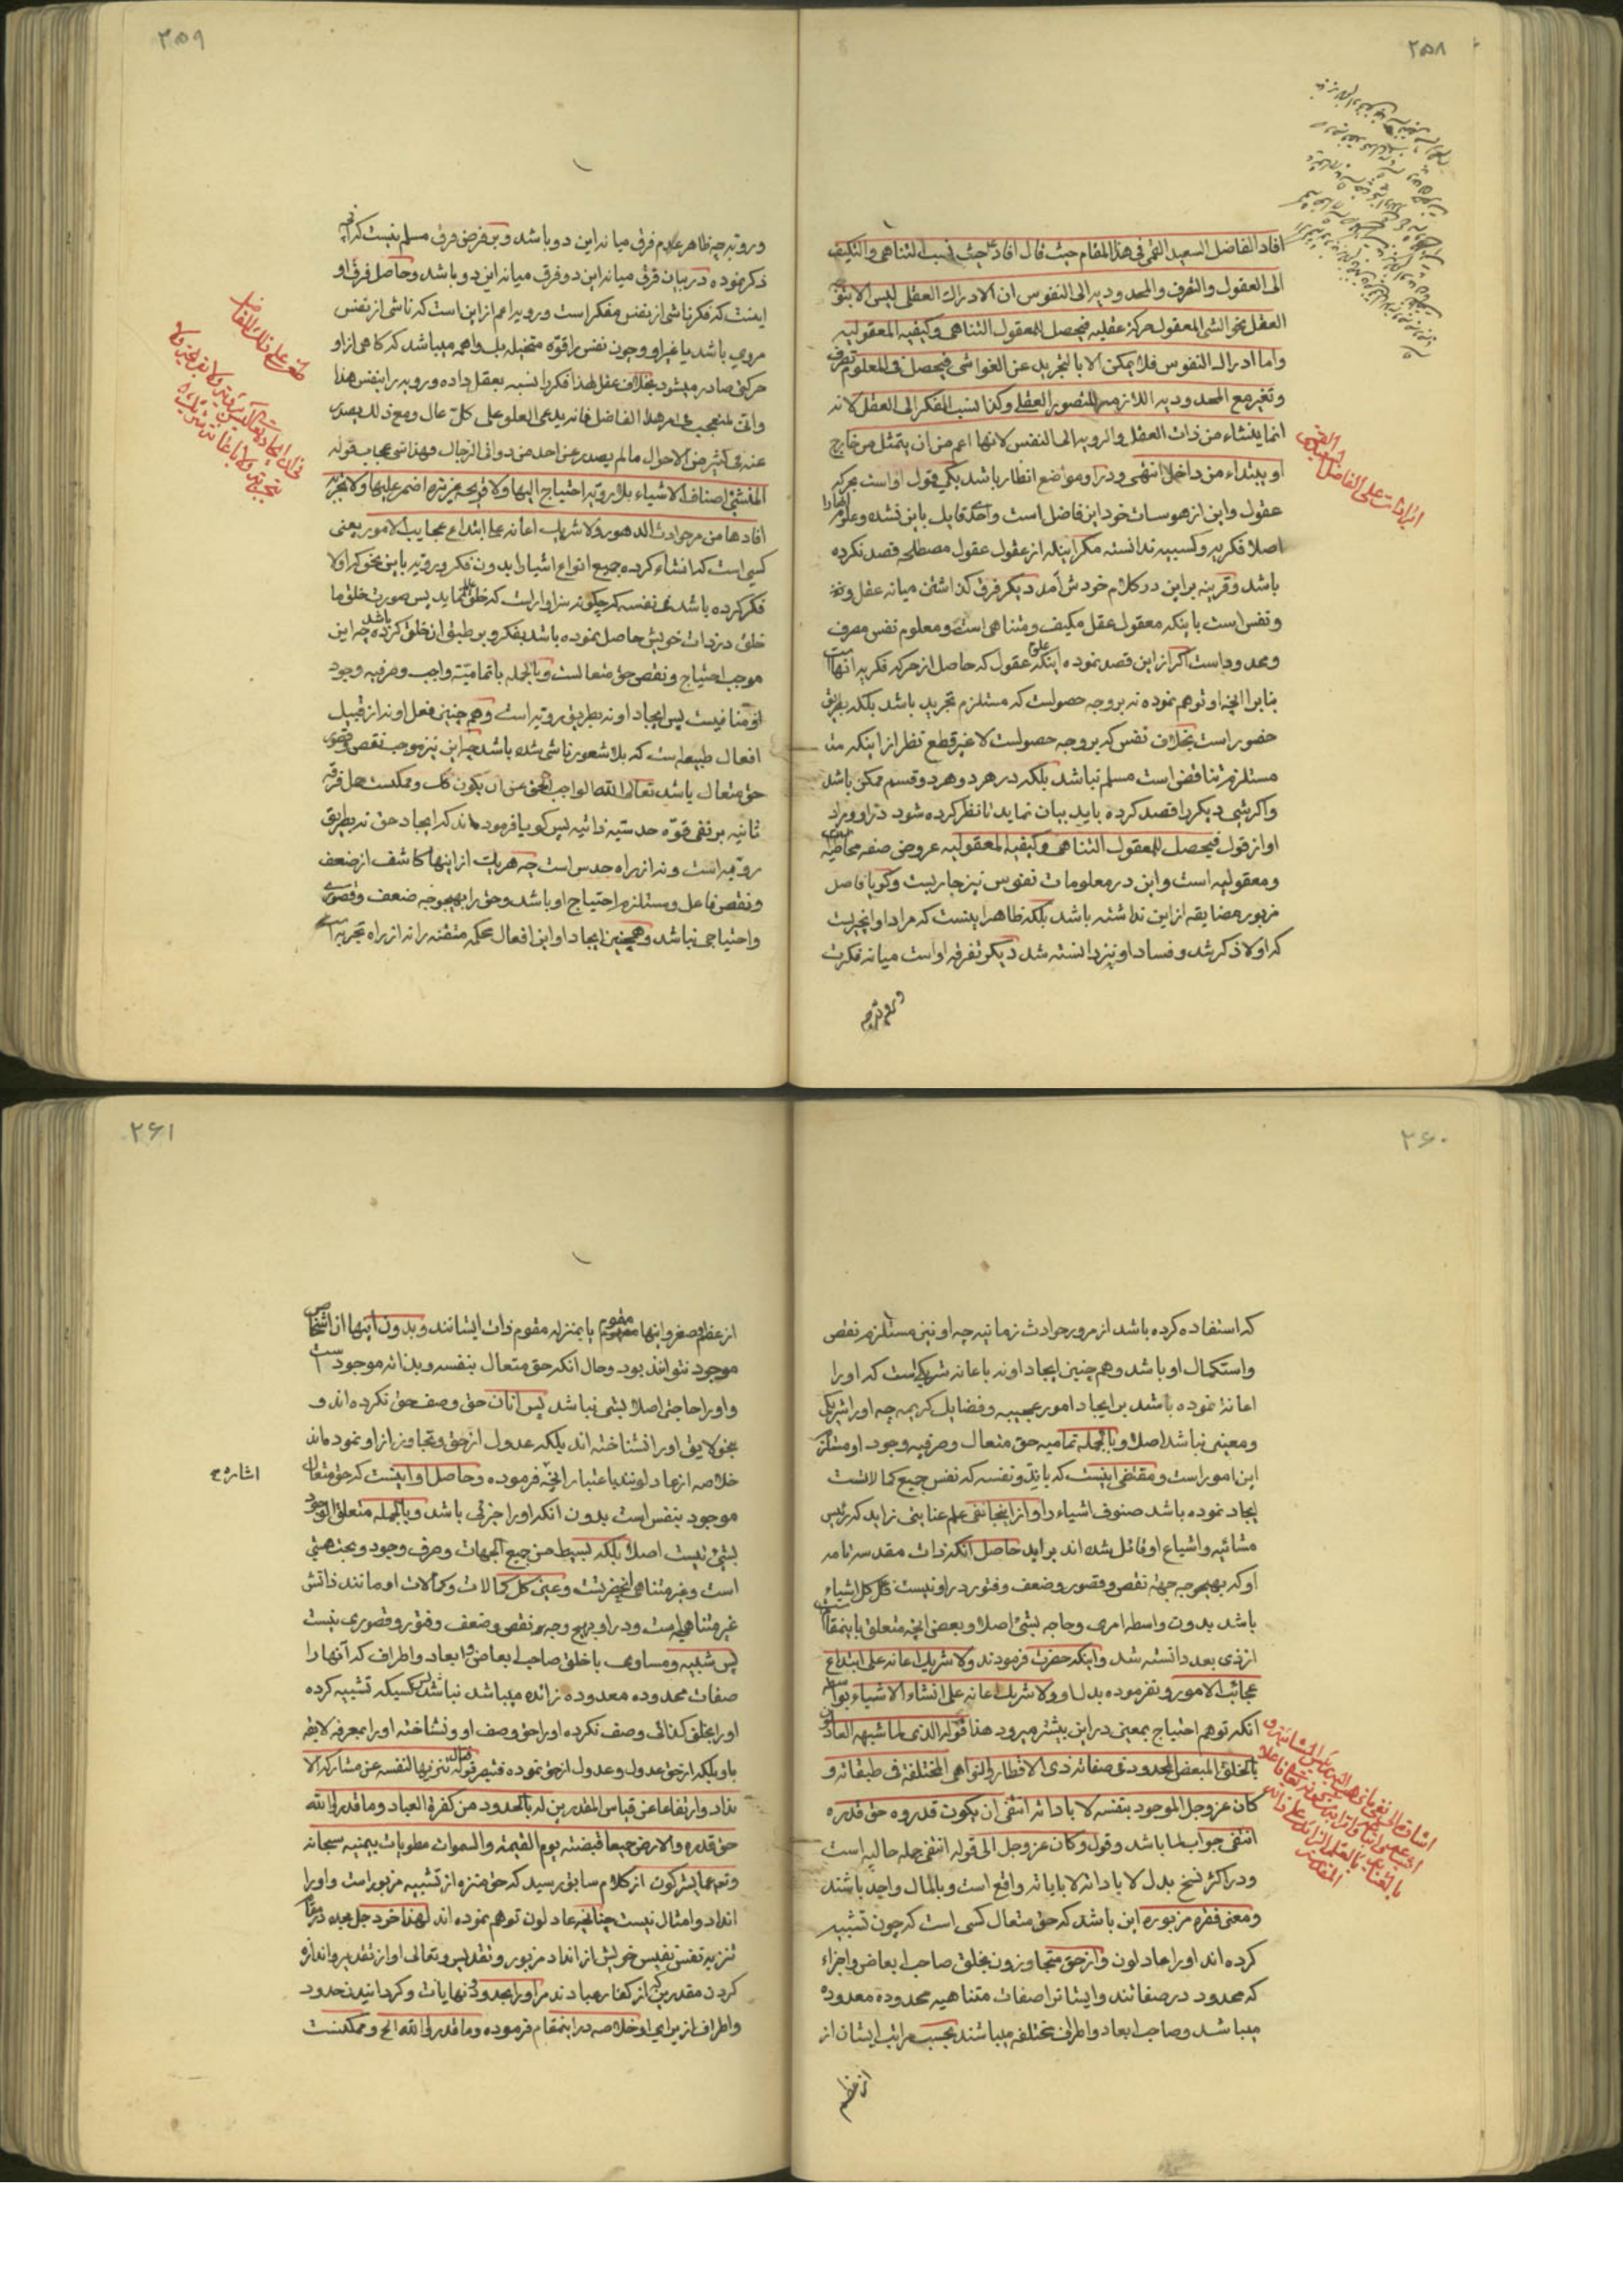 ۲۵۸
افاد الفاضل السعید القمی فی هذا المقام حیث قال افاد حیث نسب التناهی والتکیف
الی العقول والتفرف والمحدودیه الی النفوس ان الادراک العقلی لیس الا بتوجه
العقل نحو الشی المعقول حرکة عقلیه فیحصل للمعقول التناهی وکیفیه المعقولیه
واما ادراک النفوس فلا یمکن الا بالتجرید عن الغواشی فیحصل فی المعلوم تصرف
وتغیر مع المحدودیه اللازمه للتصویر العقلی وکذا نسب الفکر الی العقل لانه
انما ینشاء من ذات العقل والرویه الی النفس لانها اعم من ان یتمثل من خارج
او یبتداء من داخل انتهی ودر او مواضع انظار باشد یکی قول او است بحرکه
عقول واین از هوسات خود این فاضل است واحدی قابل باین نشده وعلوم انها را
اصلا فکریه وکسبیه ندانسته مگر اینکه از عقول عقول مصطلحه قصد نکرده
باشد وقرینه بر این در کلام خودش آمد دیگر فرق گذاشتن میانه عقل ونفس
ونفس است باینکه معقول عقل مکیف ومتناهی است ومعلوم نفس مصرف
ومحدود است اگر از این قصد نموده اینکه علوم عقول که حاصل از حرکه فکریه انها است
بنابر انچه او توهم نموده نه بر وجه حصولست که مستلزم تجرید باشد بلکه بطریق
حضور است بخلاف نفس که بر وجه حصولست لا غیر قطع نظر از اینکه
مستلزم تناقض است مسلم نباشد بلکه در هر دو هر دو قسم ممکن باشد
واگر شی دیگر را قصد کرده باید بیان نماید تا نظر کرده شود در او ومراد
او از قول فیحصل للمعقول التناهی وکیفیه المعقولیه عروض صفه
ومعقولیه است واین در معلومات نفوس نیز جاریست وگویا فاضل
مزبور مضایقه از این نداشته باشد بلکه ظاهر اینست که مراد او انچیزیست
که اولا ذکر شد وفساد او نیز دانسته شد دیگر تفرقه او است میانه فکرت
ورویه چه
ایرادات علی الفاضل السعید القمی
۲۵۹
ورویه چه ظاهر عدم فرق میانه این دو باشد وبر فرض فرق مسلم نیست که انچه
ذکر نموده در بیان فرق میانه این دو فرق میانه این دو باشد وحاصل فرق او
اینست که فکر ناشی از نفس مفکر است ورویه اعم از این است که ناشی از نفس
مروی باشد یا غیر او وچون نفس را قوه متخیله بل واهمه میباشد که گاهی از او
حرکتی صادر میشود بخلاف عقل لهذا فکر را نسبه بعقل داده ورویه را بنفس هذا
وانی لمتعجب فی امر هذا الفاضل فانه یدعی العلو علی کل عال ومع ذلک یصدر
عنه فی کثیر من الاحوال ما لم یصدر عن احد من دوانی الرجال وهذا شی عجاب قوله
المنشئ اصناف الاشیاء بلا رویه احتیاج الیها ولا قریحه غریزه اضمر علیها ولا تجربه
افادها من مر حوادث الدهور ولا شریک اعانه علی ابتداع عجایب الامور یعنی
کسی است که انشاء کرده جمیع انواع اشیا را بدون فکر ورویه باین نحو که اولا
فکر کرده باشد فی نفسه که چگونه سزاوار است که خلق عالم نماید پس صورت خلق ما
خلق در ذات خویش حاصل نموده باشد بفکر وبر طبق ان خلق کرده باشد چه این
موجب احتیاج ونقص حق متعالست وبالجمله با تمامیته واجب وصرفیه وجود
او منافیست پس ایجاد او نه بطریق رویه است وهم چنین فعل او نه از قبیل
افعال طبیعه است که بلا شعور ناشی شده باشد چه این نیز موجب نقص وقصور
حق متعال باشد تعالی الله الواجب الحق عن ان یکون کک وممکنست حمل فقره
ثانیه بر نفی قوه حدسیه ذاتیه پس گویا فرموده اند که ایجاد حق نه بطریق
رویه است ونه از راه حدس است چه هر یک از اینها کاشف از ضعف
ونقص فاعل ومستلزم احتیاج او باشد وحق را بهیچ وجه ضعف وقصوری
واحتیاجی نباشد وهمچنین ایجاد او این افعال محکمه متقنه را نه از راه تجربه است
طعن علی ذلک الفاضل
۲۶۰
که استفاده کرده باشد از مرور حوادث زمانیه چه او نیز مستلزم نقص
واستکمال او باشد وهم چنین ایجاد او نه باعانه شریکی است که او را
اعانة نموده باشد بر ایجاد امور عجیبه وفضایل کریمه چه او را شریکی
ومعینی نباشد اصلا وبالجمله تمامیه حق متعال وصرفیه وجود او مستلزم
این امور است ومقتضی اینست که بذاته ونفسه که نفس جمیع کمالاتست
ایجاد نموده باشد صنوف اشیاء را واز اینجا نفی علم عنایتی زاید که رئیس
مشائیه واشیاع او قائل شده اند براید حاصل انکه ذات مقدسه تامه
او که بهیچ وجه جهة نقص وقصور وضعف وفتور در او نیست فاعل کل اشیاء
باشد بدون واسطه امری وحاجه بشئ اصلا وبعض انچه متعلق باینمقام است
از ذی بعد دانسته شد واینکه حضرت فرمودند ولا شریک اعانه علی ابتداع
عجائب الامور ونفرموده بدل او ولا شریک اعانه علی انشاء الاشیاء بواسطه
انکه توهم احتیاج بمعین در این بیشتر میرود هذا قوله الذی لما شبهه العادلون
بالخلق المبعض المحدود فی صفاته ذی الاقطار والنواحی المختلفة فی طبقاته و
کان عز وجل الموجود بنفسه لا باداته انتفی ان یکون قدروه حق قدره
انتفی جواب لما باشد وقول وکان عز وجل الی قوله انتفی جمله حالیه است
ودر اکثر نسخ بدل لا باداته لا باناته واقع است وبالمال واحد باشند
ومعنی فقره مزبوره این باشد که حق متعال کسی است که چون تشبیه
کرده اند او را عادلون واز حق متجاوزون بخلق صاحب ابعاض واجزاء
که محدود در صفاتند وایشانرا صفات متناهیه محدوده معدوده
میباشد وصاحب ابعاد واطراف مختلفه میباشند بحسب مراتب ایشان از
از عظم
۲۶۱
از عظم وصغر واینها مقوم یا بمنزله مقوم ذات ایشانند وبدون اینها ان اشخاص
موجود نتوانند بود وحال انکه حق متعال بنفسه وبذاته موجود است
واو را حاجتی اصلا بشی نباشد پس انان حق وصف حق نکرده اند و
بنحو لایق او را نشناخته اند بلکه عدول از حق وتجاوز از او نموده اند
خلاصه از عادلونند باعتبار انچه فرموده وحاصل او اینست که حق متعال
موجود بنفس است بدون انکه او را جزئی باشد وبالجمله متعلق الوجود
بشئ نیست اصلا بلکه بسیط من جمیع الجهات وصرف وجود وبحت هستی
است وغیر متناهی التجرتت وعین کل کمالات وکمالات او مانند ذاتش
غیر متناهی است ودر او بهیچ وجه نقص وضعف وفتور وقصوری نیست
پس شبیه ومساوی با خلق صاحب ابعاض وابعاد واطراف که آنها را
صفات محدوده معدوده زائده میباشد نباشد پس کسیکه تشبیه کرده
او را بخلق کذائی وصف نکرده او را حق وصف او ونشناخته او را بمعرفه لایقه
باو بلکه از حق عدول وعدول از حق نموده فتبصر قوله فقال تنزیها لنفسه عن مشارکة الا
نداد وارتفاعا عن قیاس المقدرین له بالحدود من کفرة العباد وما قدروا الله
حق قدره والارض جمیعا قبضته یوم القیمة والسموات مطویات بیمینه سبحانه
وتعالی عما یشرکون از کلام سابق رسید که حق منزه از تشبیه مزبور است واو را
انداد وامثال نیست چنانچه عادلون توهم نموده اند لهذا خود جل مجده در مقام
تنزیه نفس نفیس خویش از انداد مزبور وتقدیس وتعالی او از تقدیر واندازه
کردن مقدرین که از کفار عبادند مر او را بحدود ونهایات وگردانیدن حدود
واطراف از برای او خلاصه در اینمقام فرموده وما قدروا الله الخ وممکنست
اشاره ح